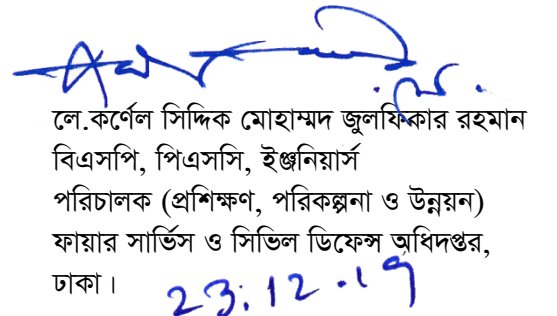 লে.কর্ণেল সিদ্দিক মোহাম্মদ জুলফিকার রহমান
বিএসপি, পিএসসি, ইঞ্জনিয়ার্স
পরিচালক (প্রশিক্ষণ, পরিকল্পনা ও উন্নয়ন)
ফায়ার সার্ভিস ও সিভিল ডিফেন্স অধিদপ্তর,
ঢাকা।
23.12.19